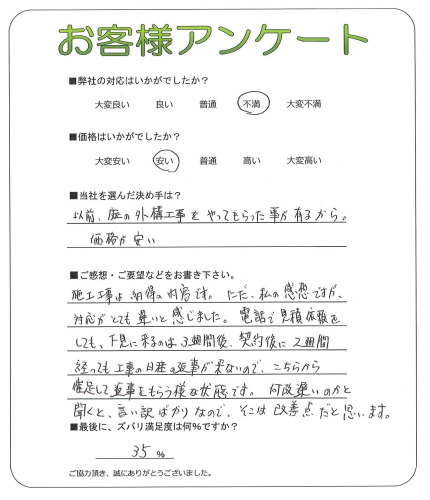 お客様アンケート
■弊社の対応はいかがでしたか?
大変良い 良い 普通 不満 大変不満
■価格はいかがでしたか?
大変安い 安い 普通 高い 大変高い
■当社を選んだ決め手は?
以前、庭の外構工事をやってもらった事が有るから。
価格が安い
■ご感想・ご要望などをお書き下さい。
施工工事は納得の内容です。ただ、私の感想ですが、
対応がとても遅いと感じました。電話で見積依頼を
しても、下見に来るのは3週間後、契約後に2週間
経っても工事の日程の返事が来ないので、こちらから
催促して返事をもらう様な状態です。何故遅いのかと
聞くと、言い訳ばかりなので、そこは改善点だと思います。
■最後に、ズバリ満足度は何%ですか?
35 %
ご協力頂き、誠にありがとうございました。